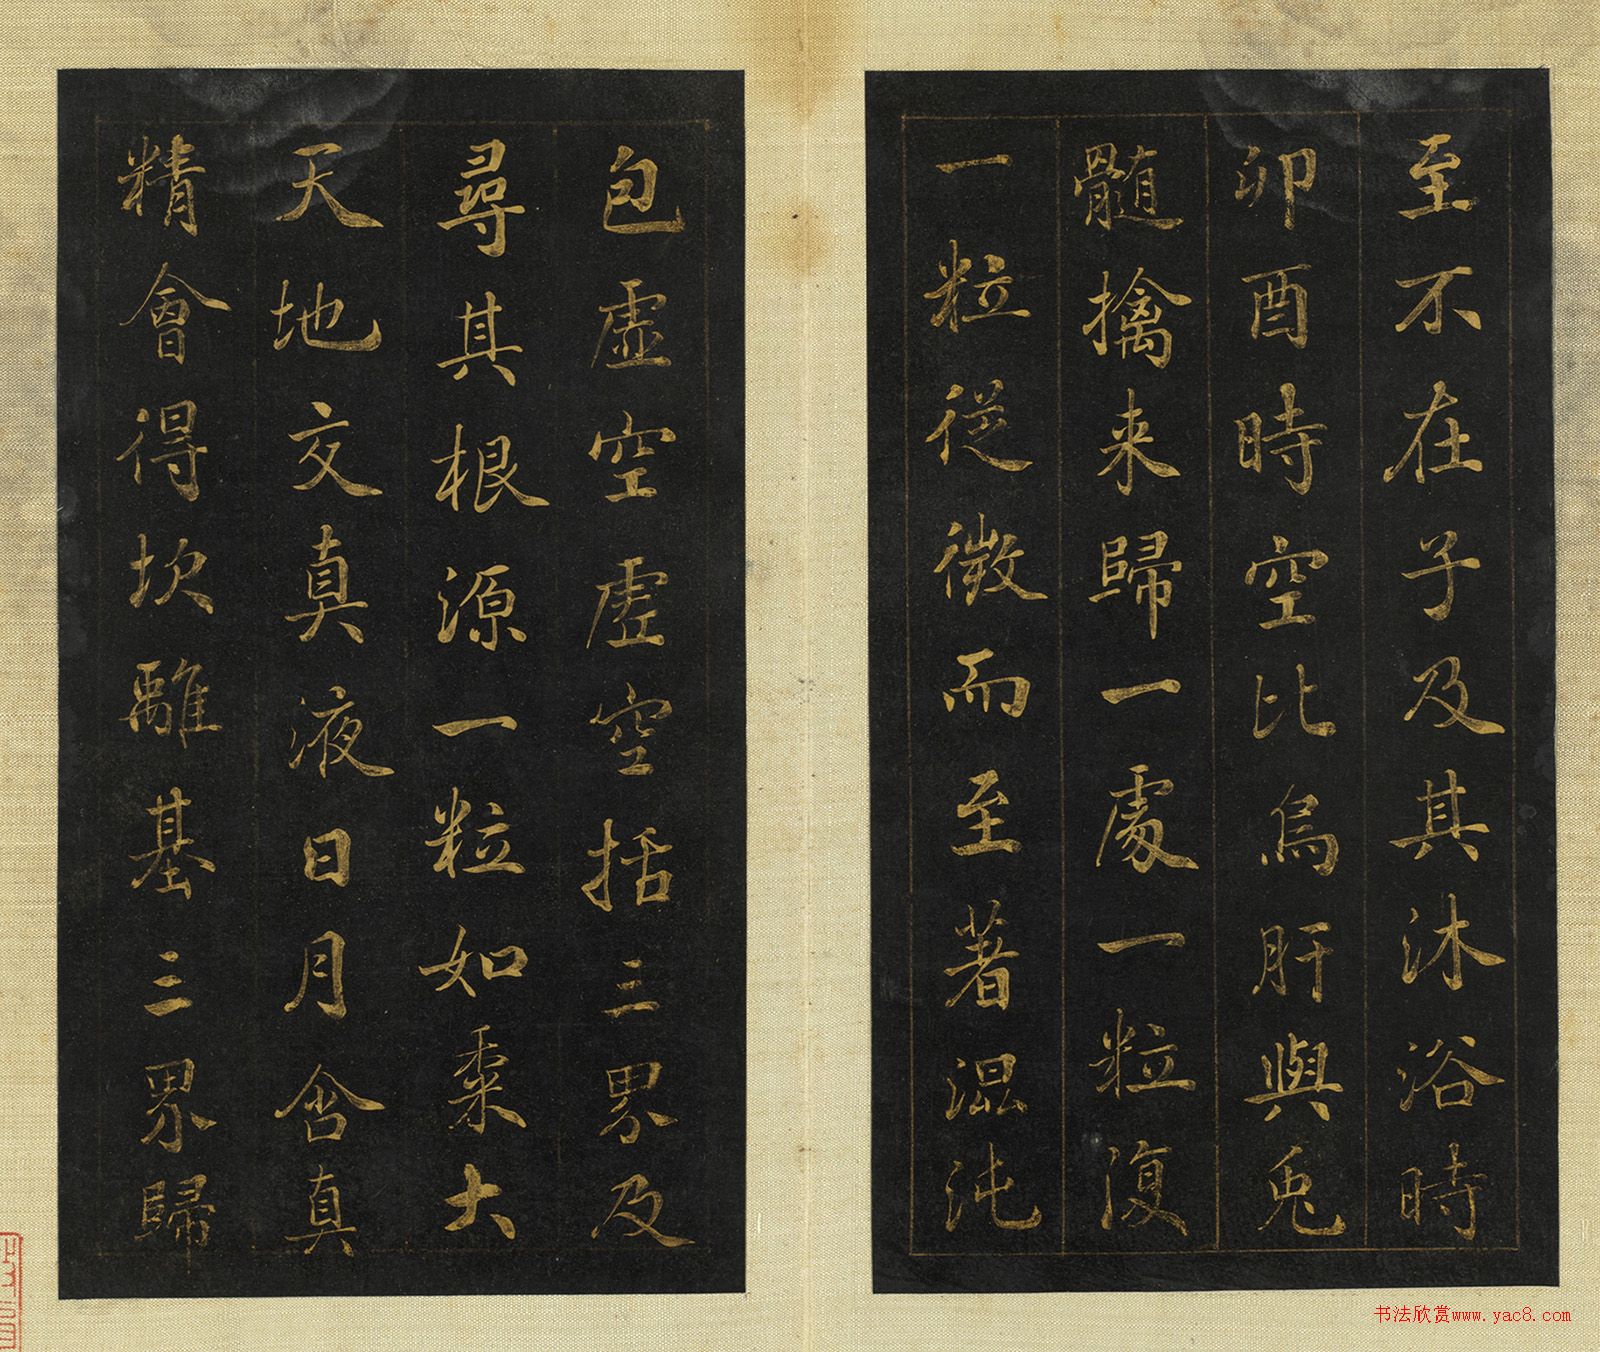 至不在子及其沐浴時
卯酉時空比烏肝與兎
髓擒来歸一處一粒復
一粒從微而至著混沌
包虛空虛空括三界及
尋其根源一粒如黍大
天地交真液日月含真
精會得坎離基三界歸
书法欣赏www.yac8.com